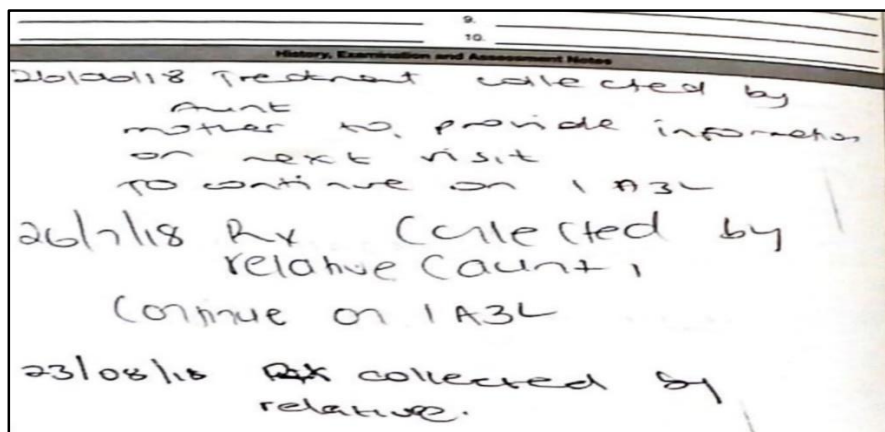 9.
10.
History, Examination and Assessment Notes
Treatment collected by
Aunt
mother to, provide information
on next visit
TO continue on 1 A3L
26/7/18 Rx Collected by
relative (aunt)
Continue on 1 A3L
23/08/18 Rx collected by
relative.